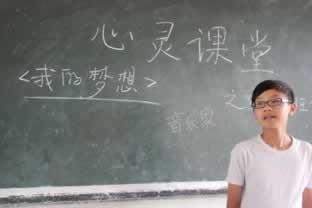 心灵课堂
<我的梦想>
之
音乐家